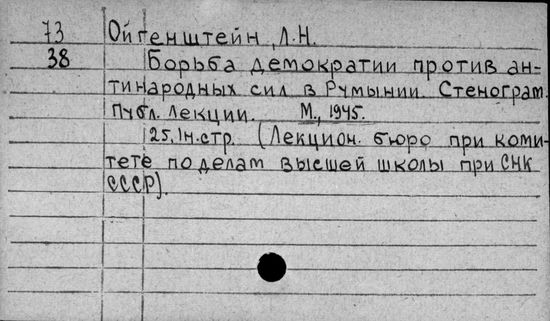 73 Ойгенштейн, Л.Н.
38 Борьба демократии против ан-
тинародных сил в Румынии. Стенограм.
публ. лекции. М., 1945.
25, 1н. стр. (Лекцион. бюро при коми-
тете по делам высшей школы при СНК
СССР).